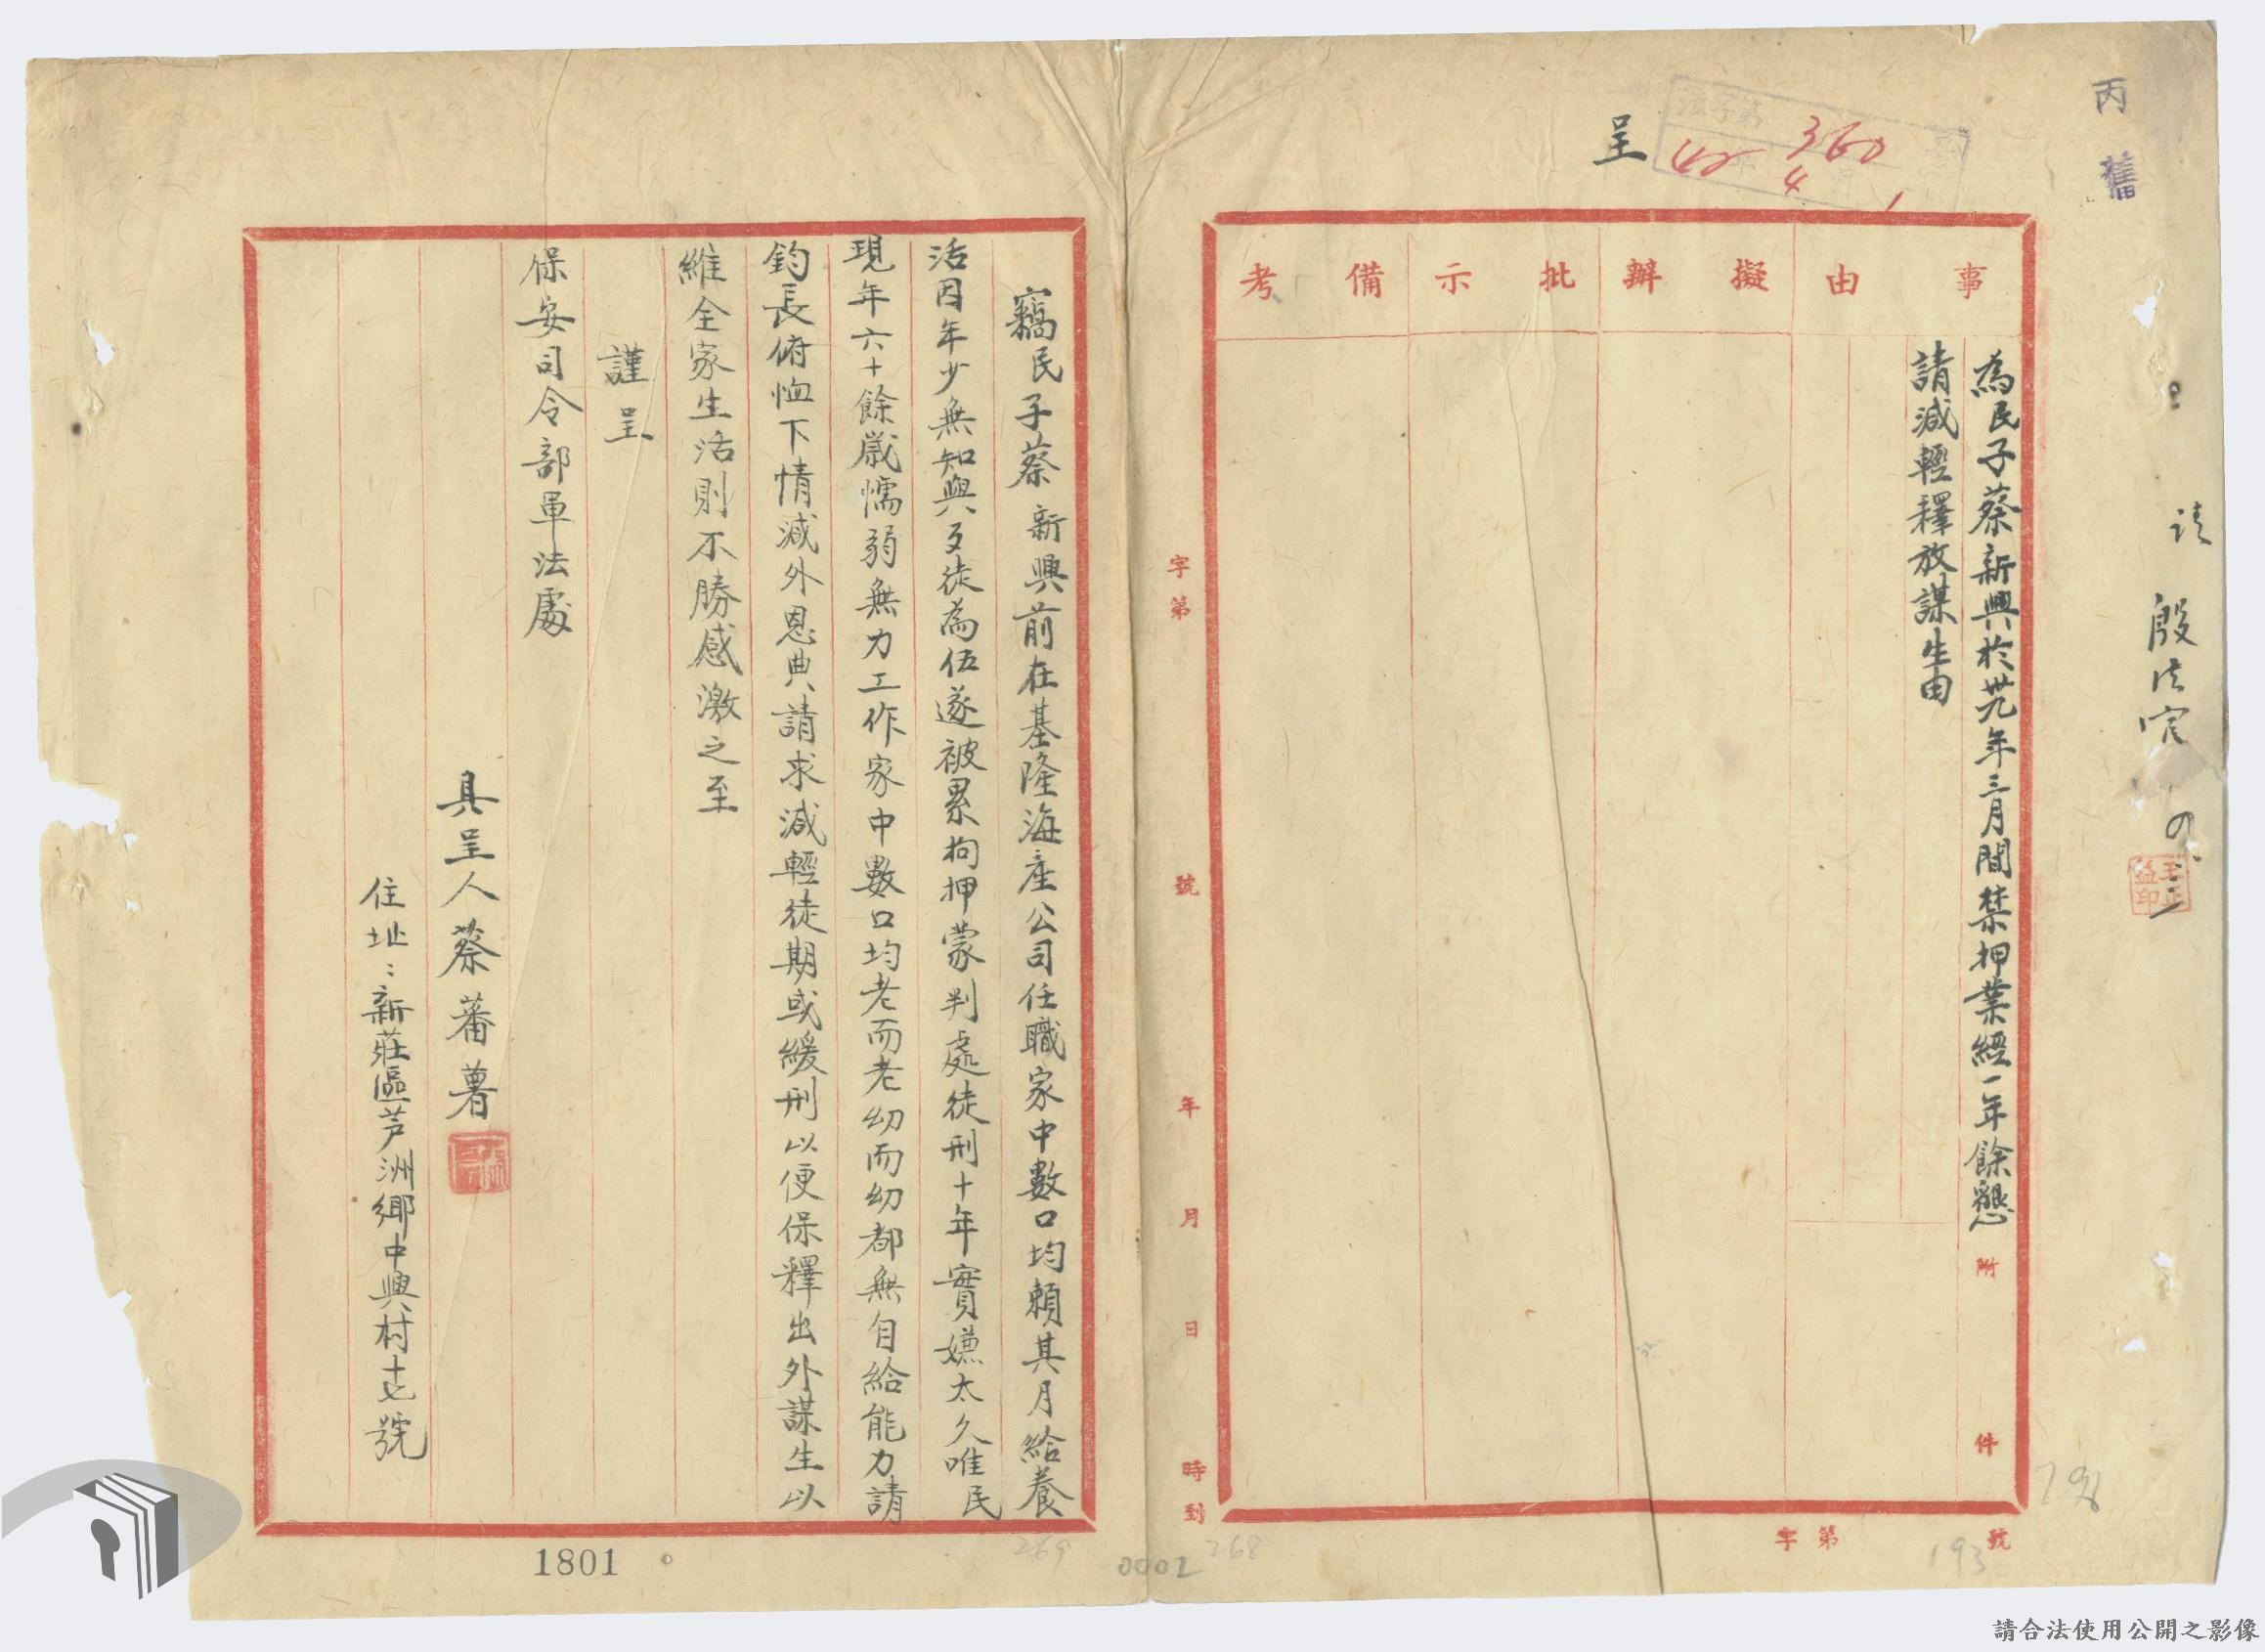 丙 舊
呈
法字第
360
42 4 1
請 殷法官
王正益印
事由
擬辦
批示
備考
為民子蔡新興於卅九年三月間禁押業經一年餘懇
請減輕釋放謀生由
附 件
字第 號
字第 號 年 月 日 時到
竊民子蔡新興前在基隆海產公司任職家中數口均賴其月給養
活因年少無知與歹徒為伍遂被累拘押蒙判處徒刑十年實嫌太久唯民
現年六十餘歲懦弱無力工作家中數口均老而老幼而幼都無自給能力請
鈞長俯恤下情減外恩典請求減輕徒期或緩刑以便保釋出外謀生以
維全家生活則不勝感激之至
謹呈
保安司令部軍法處
具呈人蔡蕃薯
住址：新莊區芦洲鄉中興村十七號
298
193
268
269
0002
1801
請合法使用公開之影像